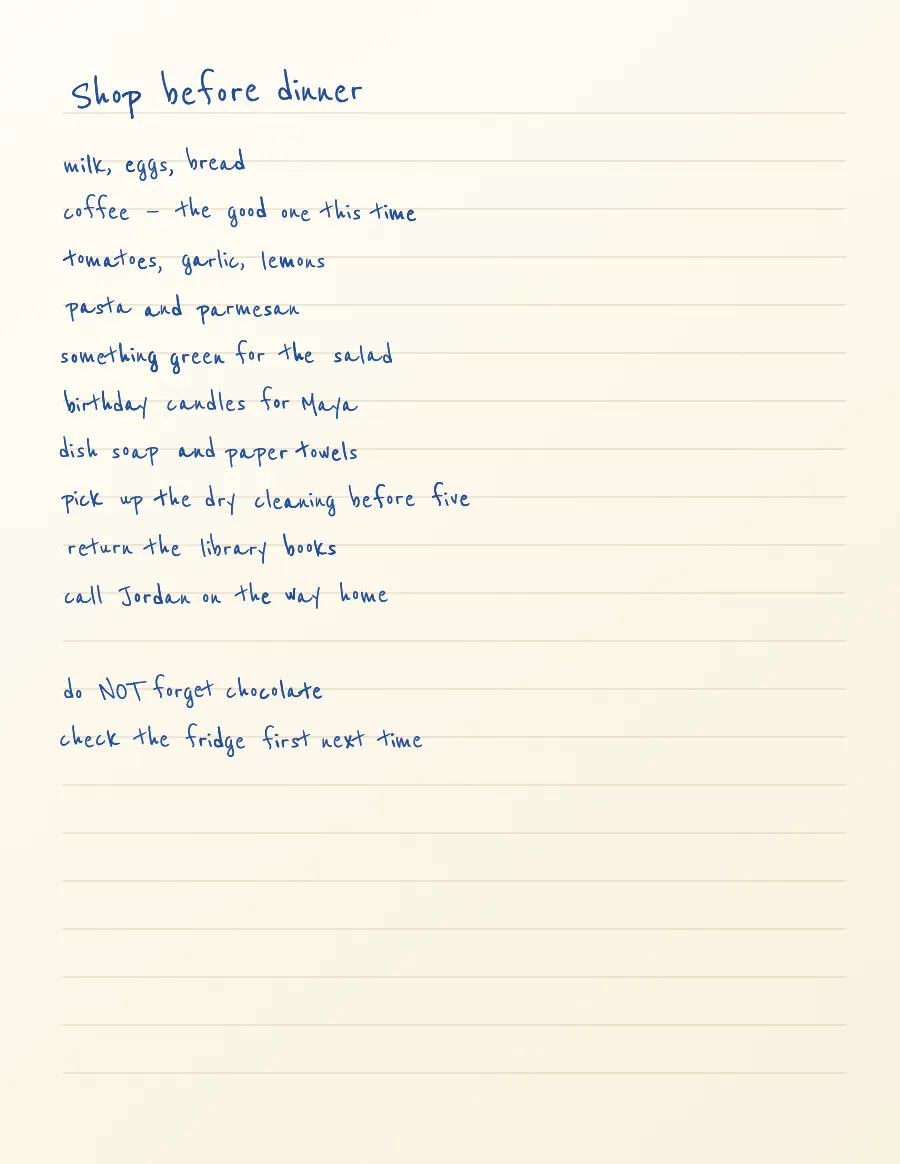 Shop before dinner
milk, eggs, bread
coffee – the good one this time
tomatoes, garlic, lemons
pasta and parmesan
something green for the salad
birthday candles for Maya
dish soap and paper towels
pick up the dry cleaning before five
return the library books
call Jordan on the way home
do NOT forget chocolate
check the fridge first next time